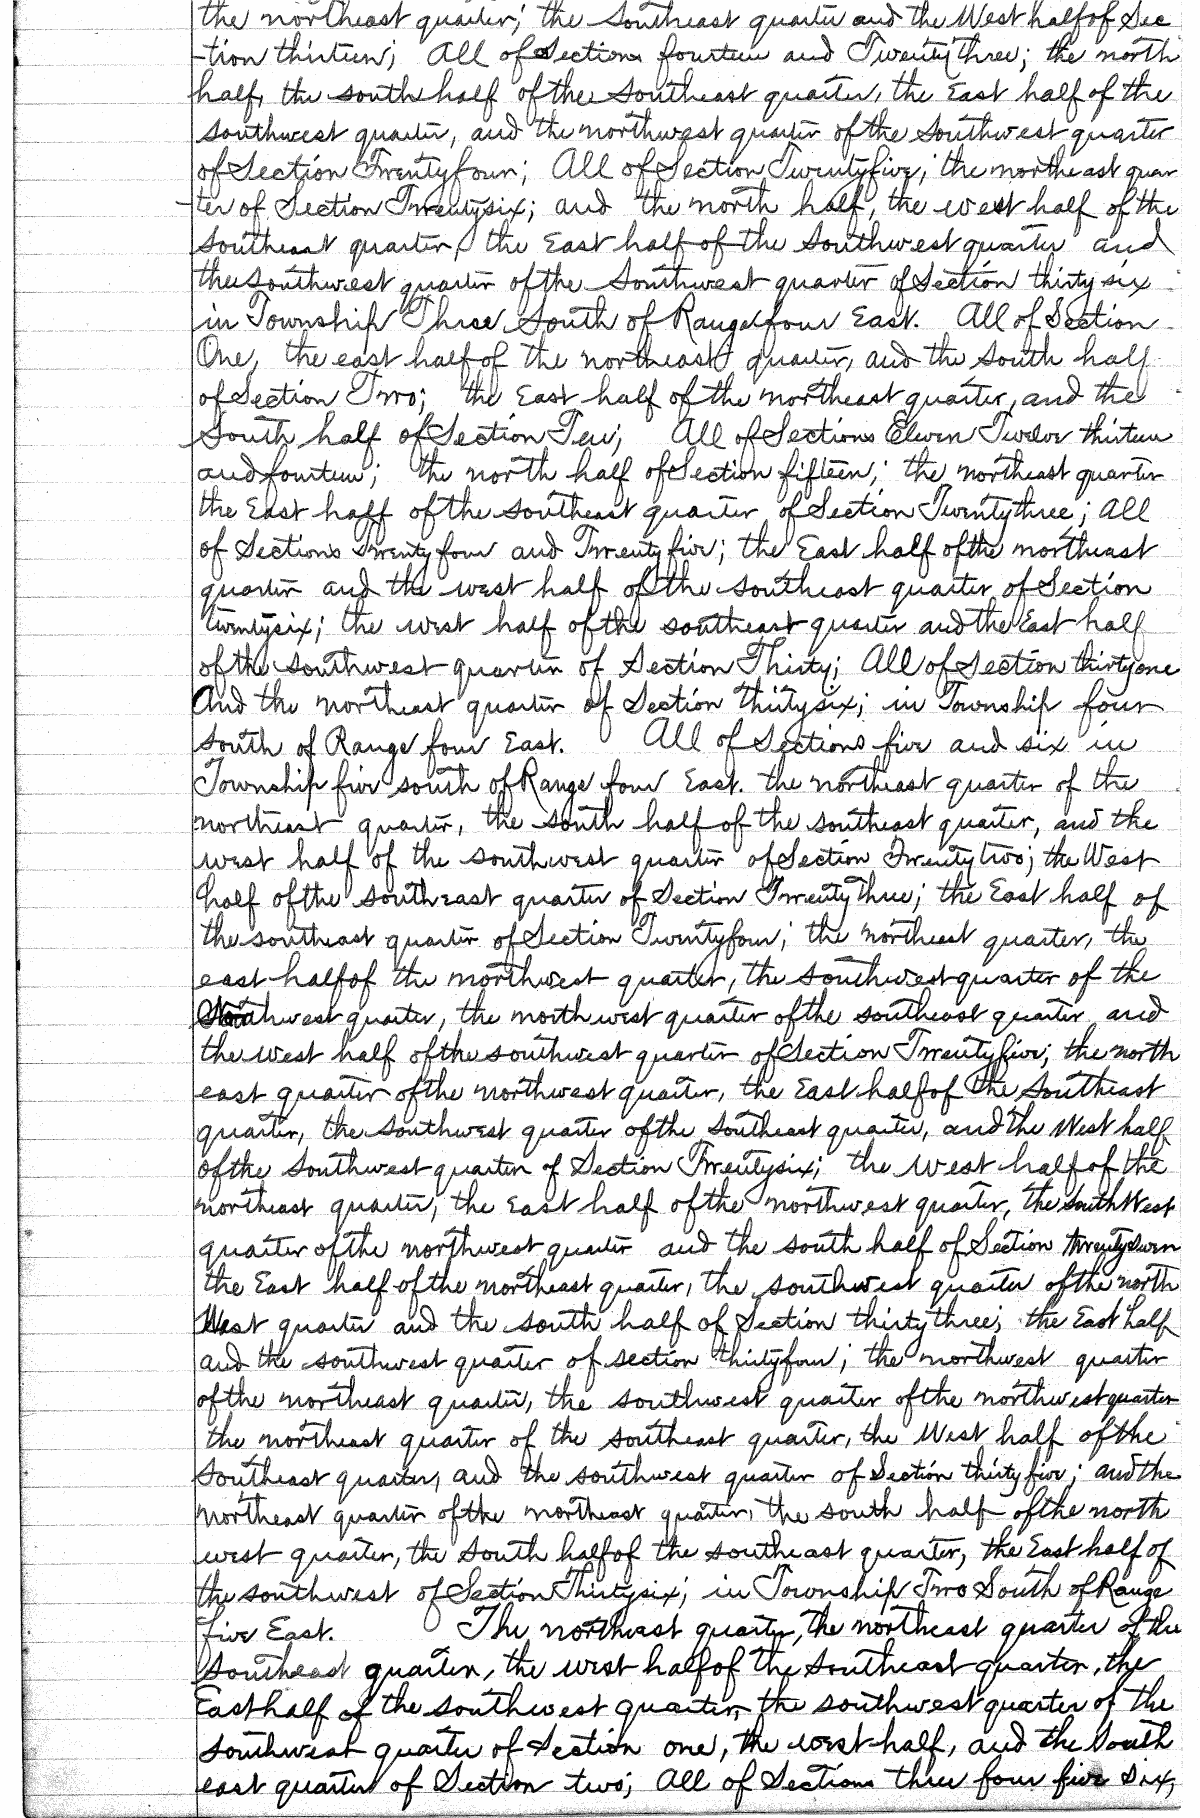 the northeast quarter; the Southeast quarter and the West half of Sec
-tion thirteen; All of Sections fourteen and Twenty three; the north
half, the south half of the Southeast quarter, the East half of the
southwest quarter, and the northwest quarter of the Southwest quarter
of Section Twenty four; All of Section Twenty five; the northeast quar
-ter of Section Twenty six; and the north half, the west half of the
southeast quarter, the East half of the Southwest quarter and
the southwest quarter of the Southwest quarter of Section thirty six
in Township Three South of Range four East. All of Section
One, the east half of the northeast quarter, and the south half
of Section Two; the East half of the northeast quarter, and the
South half of Section Ten; All of Sections Eleven Twelve thirteen
and fourteen; the north half of Section fifteen; the northeast quarter
the East half of the southeast quarter of Section Twenty three; All
of Sections Twenty four and Twenty five; the East half of the northeast
quarter and the west half of the southeast quarter of Section
twenty six; the west half of the southeast quarter and the East half
of the southwest quarter of Section Thirty; All of Section thirty one
And the northeast quarter of Section thirty six; in Township four
south of Range four East. All of Sections five and six in
Township five south of Range four East. the northeast quarter of the
northeast quarter, the south half of the southeast quarter, and the
west half of the southwest quarter of Section Twenty two; the West
half of the southeast quarter of Section Twenty three; the East half of
the southeast quarter of Section Twenty four; the northeast quarter, the
east half of the northwest quarter, the southwest quarter of the
Southwest quarter, the northwest quarter of the southeast quarter and
the West half of the southwest quarter of Section Twenty five; the north
east quarter of the northwest quarter, the East half of the Southeast
quarter, the Southwest quarter of the Southeast quarter, and the West half
of the Southwest quarter of Section Twenty six; the West half of the
northeast quarter, the East half of the northwest quarter, the South West
quarter of the northwest quarter and the south half of Section twenty seven
the East half of the northeast quarter, the southwest quarter of the north
West quarter and the south half of Section thirty three; the East half
and the southwest quarter of section thirty four; the northwest quarter
of the northeast quarter, the southwest quarter of the northwest quarter
the northeast quarter of the southeast quarter, the West half of the
Southeast quarter, and the southwest quarter of Section thirty five; and the
northeast quarter of the northeast quarter, the south half of the north
west quarter, the South half of the southeast quarter, the East half of
the southwest of Section Thirty six; in Township Two South of Range
five East. The northeast quarter, the northeast quarter of the
Southeast quarter, the west half of the Southeast quarter, the
East half of the southwest quarter, the southwest quarter of the
southwest quarter of Section one, the west half, and the South
east quarter of Section two; All of Sections three four five six,